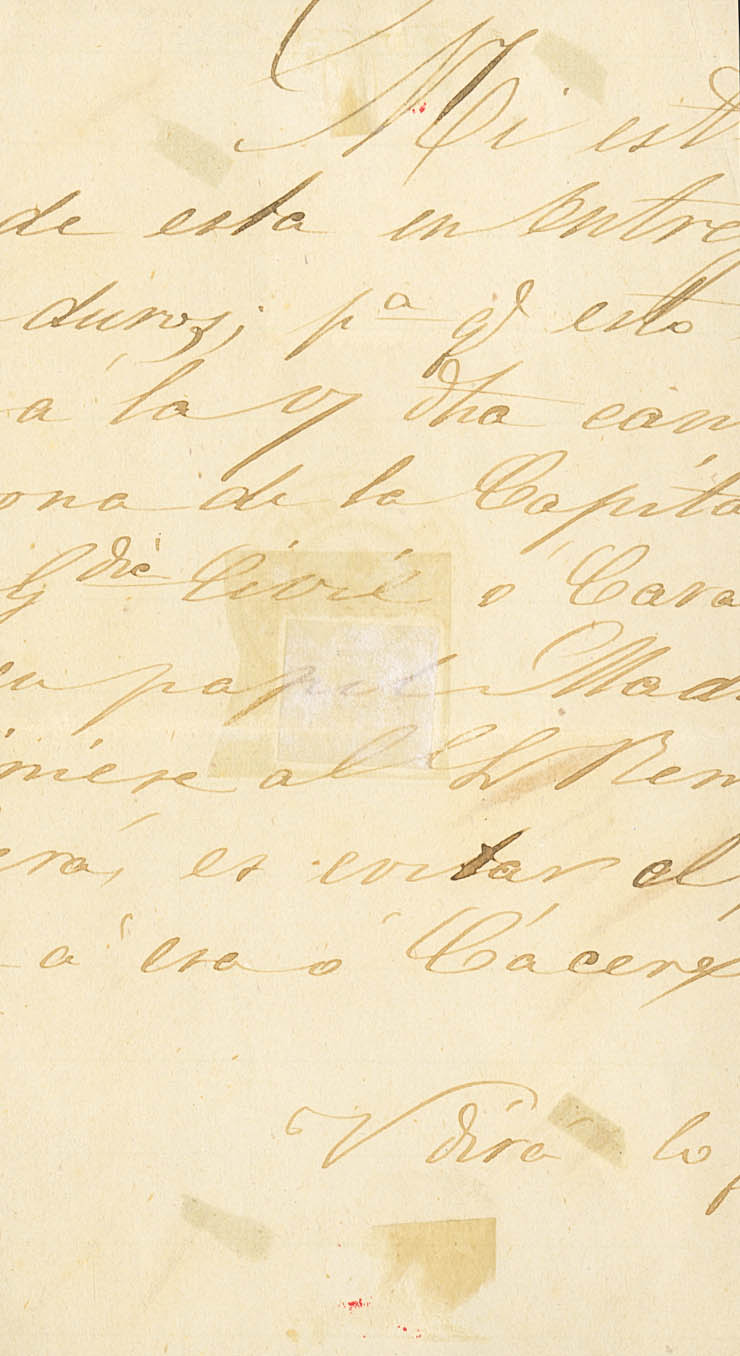 Mi est
de esta en entreg
duros, pª q esto
a la v/ dha can
ona de la Capita
G dia Civil o Cara
su papel Mad
al Rem
erá, es evitar el
a esa ó Cáceres
V dirá lo